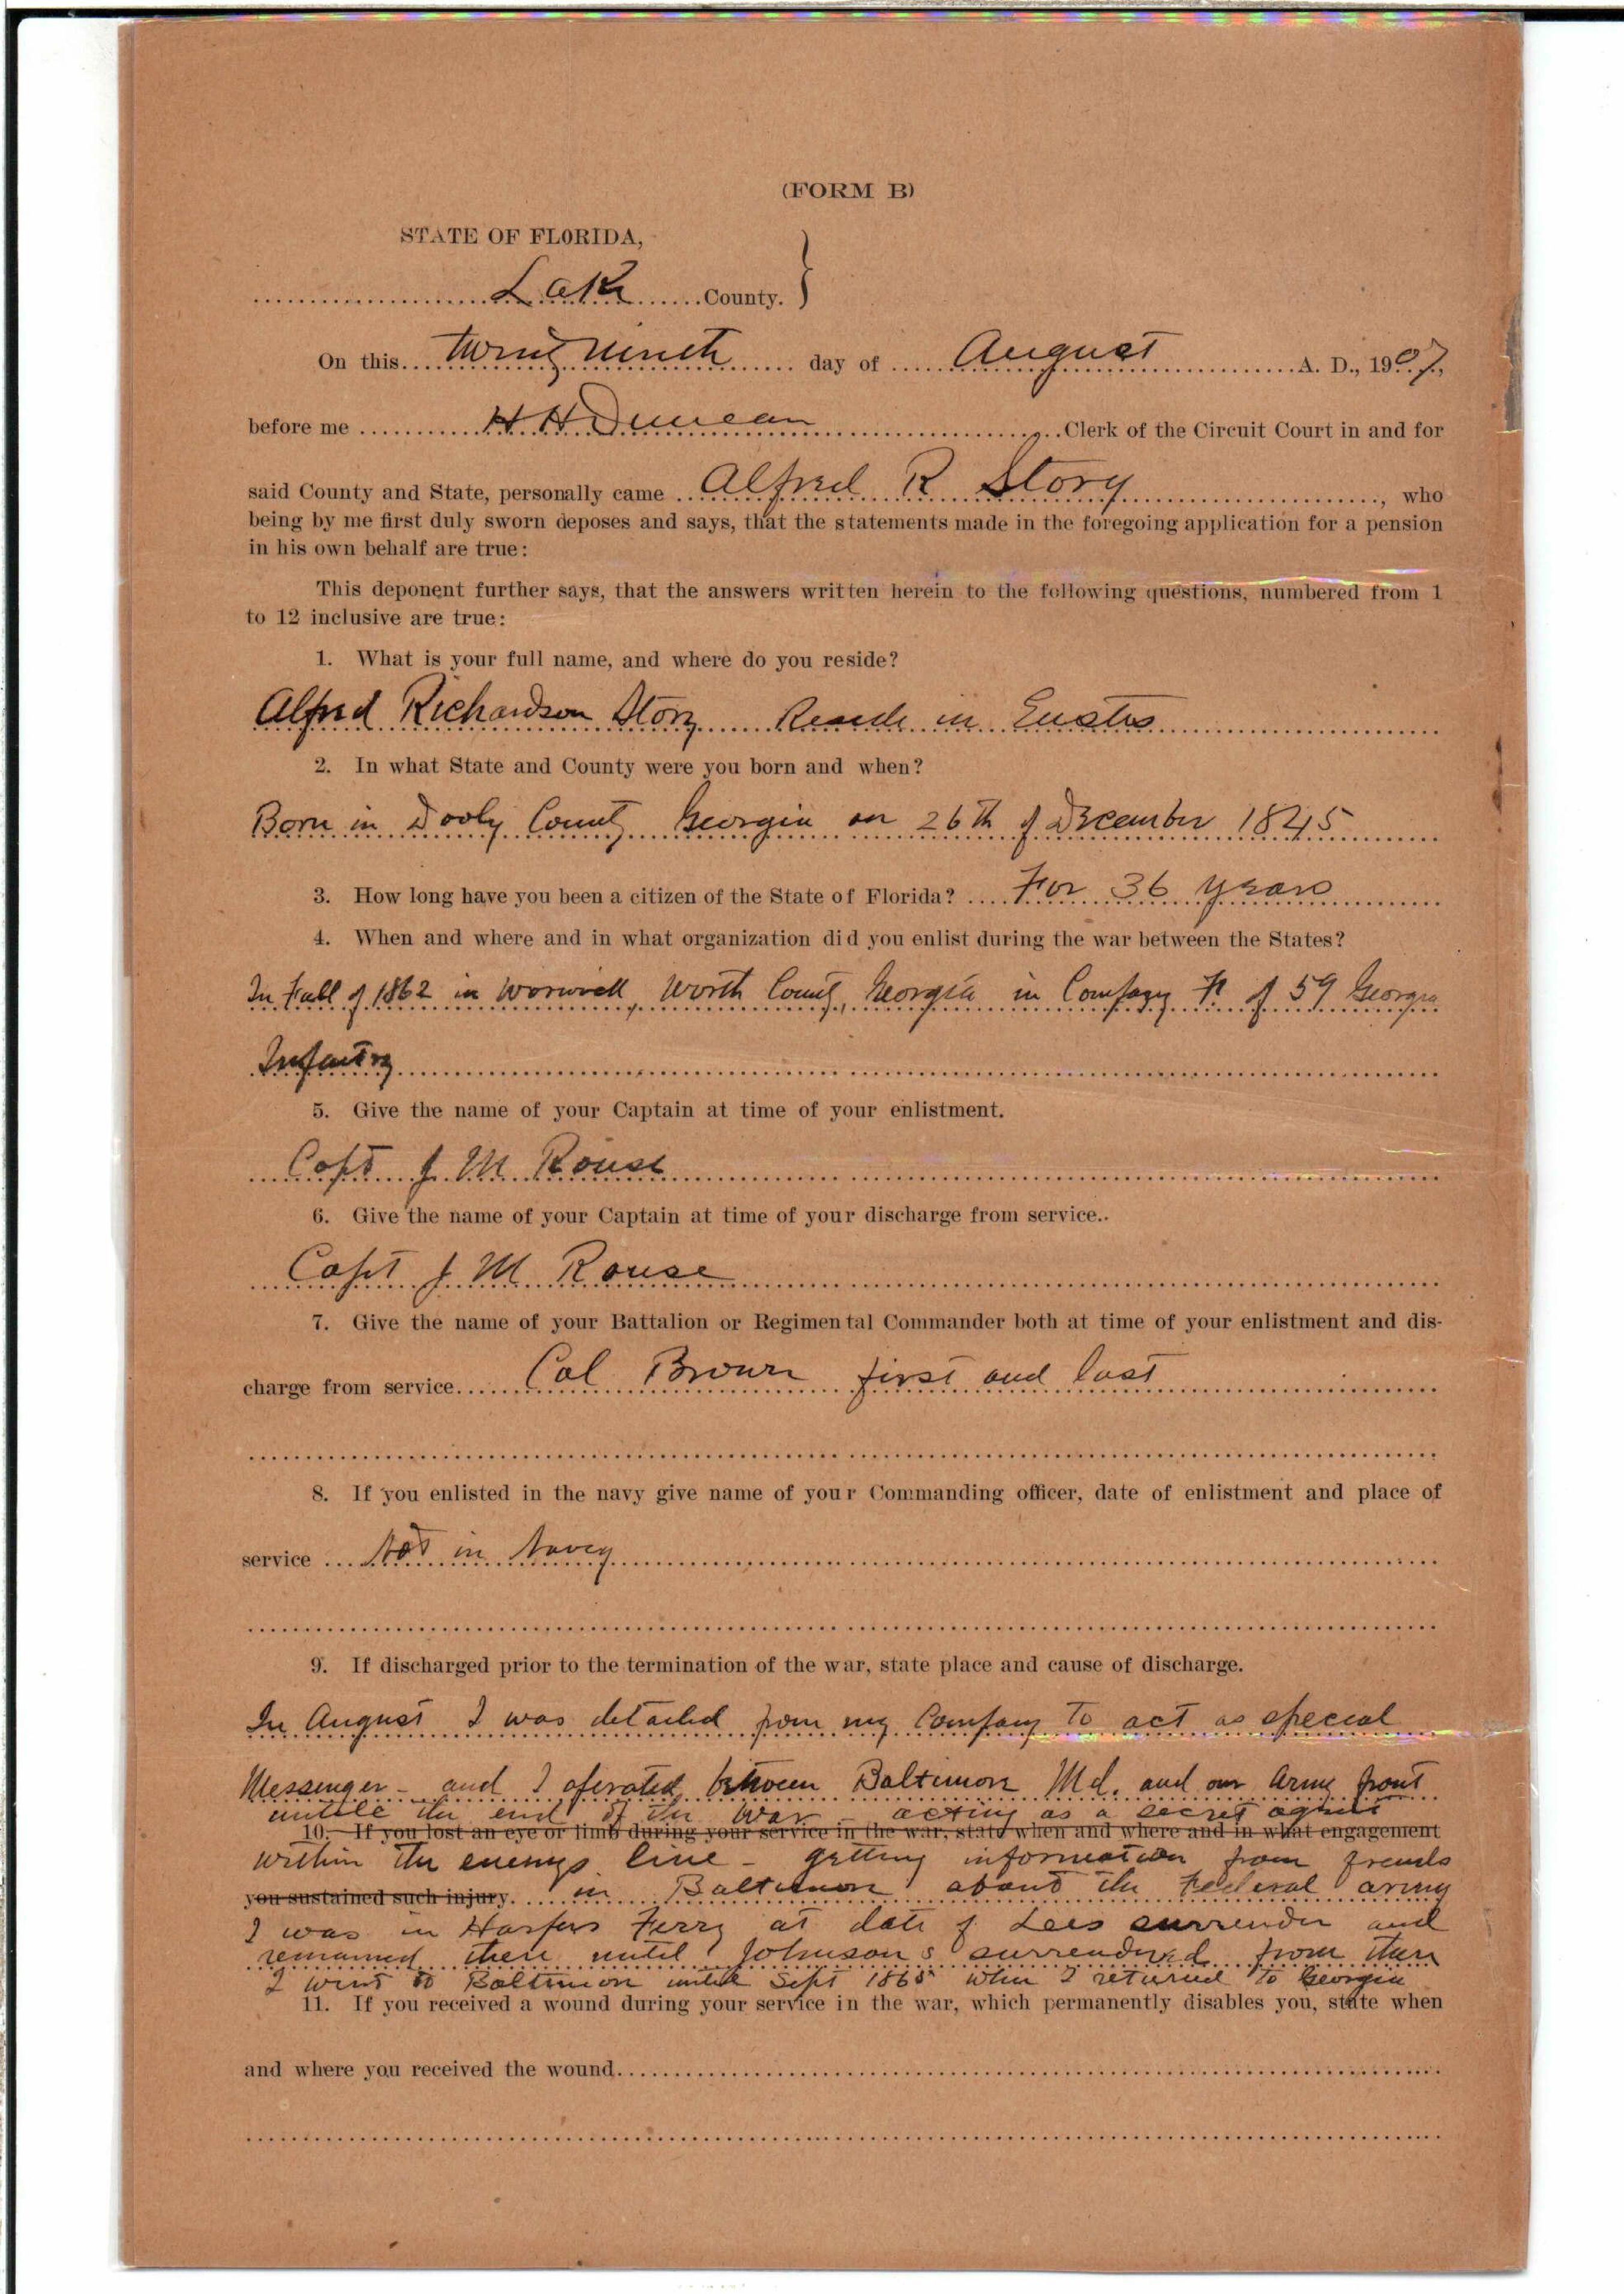 (FORM B)
STATE OF FLORIDA,
Lake County. }
On this twenty ninth day of August A. D., 1907,
before me H H Duncan, Clerk of the Circuit Court in and for
said County and State, personally came Alfred R Story, who
being by me first duly sworn deposes and says, that the statements made in the foregoing application for a pension
in his own behalf are true:
This deponent further says, that the answers written herein to the following questions, numbered from 1
to 12 inclusive are true:
1. What is your full name, and where do you reside?
Alfred Richardson Story Reside in Eustis
2. In what State and County were you born and when?
Born in Dooly County Georgia on 26th of December 1845
3. How long have you been a citizen of the State of Florida? For 36 years
4. When and where and in what organization did you enlist during the war between the States?
In Fall of 1862 in Worwick, Worth County, Georgia in Company F. of 59 Georgia
Infantry
5. Give the name of your Captain at time of your enlistment.
Capt J. M Rouse
6. Give the name of your Captain at time of your discharge from service..
Capt J. M Rouse
7. Give the name of your Battalion or Regimental Commander both at time of your enlistment and dis-
charge from service Col Brown first and last
8. If you enlisted in the navy give name of your Commanding officer, date of enlistment and place of
service Not in Navy
9. If discharged prior to the termination of the war, state place and cause of discharge.
In August I was detailed from my Company to act as special
Messenger - and I operated between Baltimore Md. and our Army front
untile the end of the War - acting as a secret agent
10. If you lost an eye or limb during your service in the war, state when and where and in what engagement
within the enemys line - getting information from friends
you sustained such injury. in Baltimore about the Federal army
I was in Harpers Ferry at date of Lees surrender and
remained there until Johnson s surrendered from then
I went to Baltimore untile Sept 1865 when I returned to Georgia
11. If you received a wound during your service in the war, which permanently disables you, state when
and where you received the wound